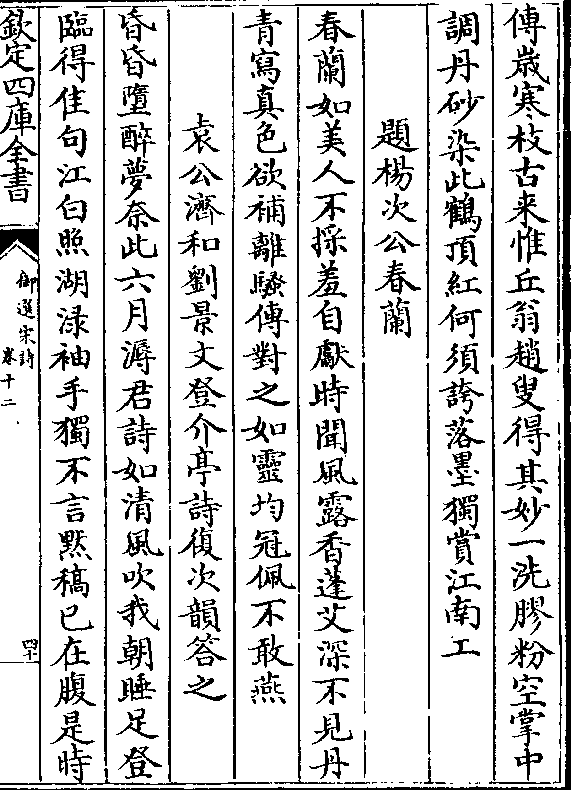 傳歲寒枝古来惟丘翁趙叟得其妙一洗膠粉空掌中
調丹砂染此鶴頂紅何須誇落墨獨賞江南工
題楊次公春蘭
春蘭如美人不採羞自獻時聞風露香蓬艾深不見丹
青寫真色欲補離騷傳對之如靈均冠佩不敢燕
袁公濟和劉景文登介亭詩復次韻答之
昏昏墮醉夢奈此六月溽君詩如清風吹我朝睡足登
臨得佳句江白照湖渌袖手獨不言黙稿已在腹是時
欽定四庫全書
御選宋詩
卷十二
四十